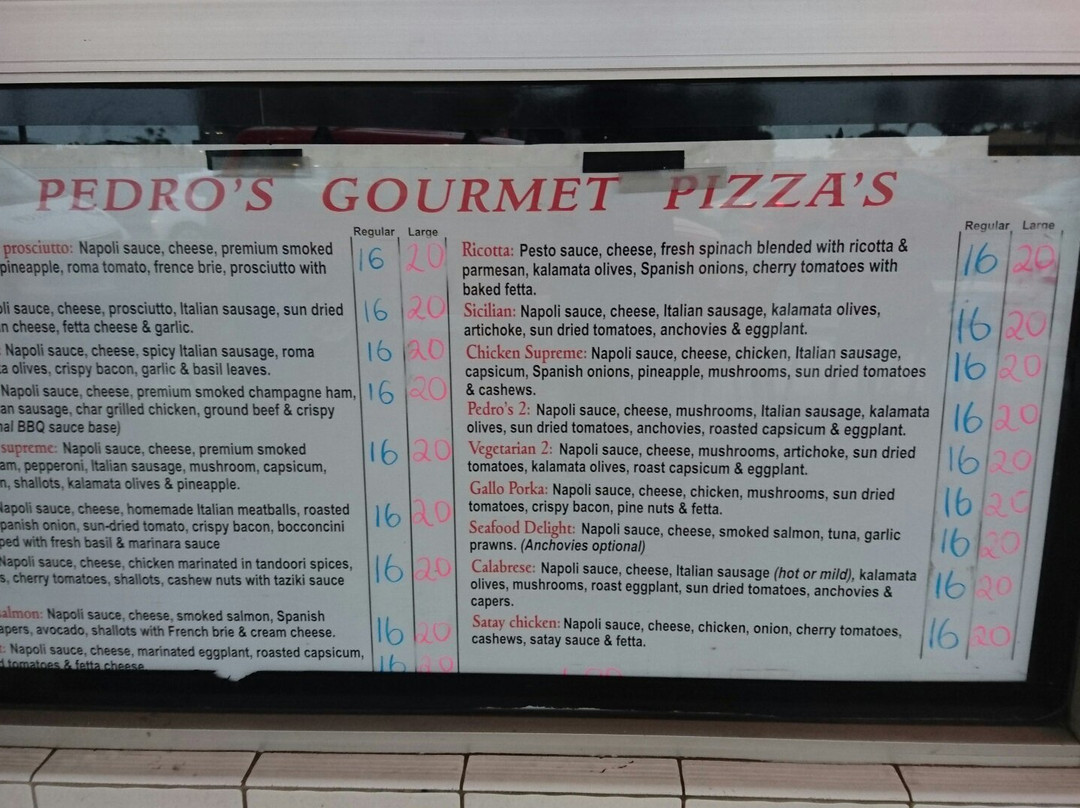 PEDRO'S GOURMET PIZZA'S
Regular Large
prosciutto: Napoli sauce, cheese, premium smoked
pineapple, roma tomato, frence brie, prosciutto with
16 20
li sauce, cheese, prosciutto, Italian sausage, sun dried
n cheese, fetta cheese & garlic.
16 20
: Napoli sauce, cheese, spicy Italian sausage, roma
a olives, crispy bacon, garlic & basil leaves.
16 20
Napoli sauce, cheese, premium smoked champagne ham,
an sausage, char grilled chicken, ground beef & crispy
nal BBQ sauce base)
16 20
supreme: Napoli sauce, cheese, premium smoked
am, pepperoni, Italian sausage, mushroom, capsicum,
n, shallots, kalamata olives & pineapple.
16 20
Napoli sauce, cheese, homemade Italian meatballs, roasted
panish onion, sun-dried tomato, crispy bacon, bocconcini
ped with fresh basil & marinara sauce
16 20
Napoli sauce, cheese, chicken marinated in tandoori spices,
s, cherry tomatoes, shallots, cashew nuts with taziki sauce
16 20
almon: Napoli sauce, cheese, smoked salmon, Spanish
apers, avocado, shallots with French brie & cream cheese.
16 20
t: Napoli sauce, cheese, marinated eggplant, roasted capsicum,
d tomatoes & fetta cheese
16 20
Regular Large
Ricotta: Pesto sauce, cheese, fresh spinach blended with ricotta &
parmesan, kalamata olives, Spanish onions, cherry tomatoes with
baked fetta.
16 20
Sicilian: Napoli sauce, cheese, Italian sausage, kalamata olives,
artichoke, sun dried tomatoes, anchovies & eggplant.
16 20
Chicken Supreme: Napoli sauce, cheese, chicken, Italian sausage,
capsicum, Spanish onions, pineapple, mushrooms, sun dried tomatoes
& cashews.
16 20
Pedro's 2: Napoli sauce, cheese, mushrooms, Italian sausage, kalamata
olives, sun dried tomatoes, anchovies, roasted capsicum & eggplant.
16 20
Vegetarian 2: Napoli sauce, cheese, mushrooms, artichoke, sun dried
tomatoes, kalamata olives, roast capsicum & eggplant.
16 20
Gallo Porka: Napoli sauce, cheese, chicken, mushrooms, sun dried
tomatoes, crispy bacon, pine nuts & fetta.
16 20
Seafood Delight: Napoli sauce, cheese, smoked salmon, tuna, garlic
prawns. (Anchovies optional)
16 20
Calabrese: Napoli sauce, cheese, Italian sausage (hot or mild), kalamata
olives, mushrooms, roast eggplant, sun dried tomatoes, anchovies &
capers.
16 20
Satay chicken: Napoli sauce, cheese, chicken, onion, cherry tomatoes,
cashews, satay sauce & fetta.
16 20